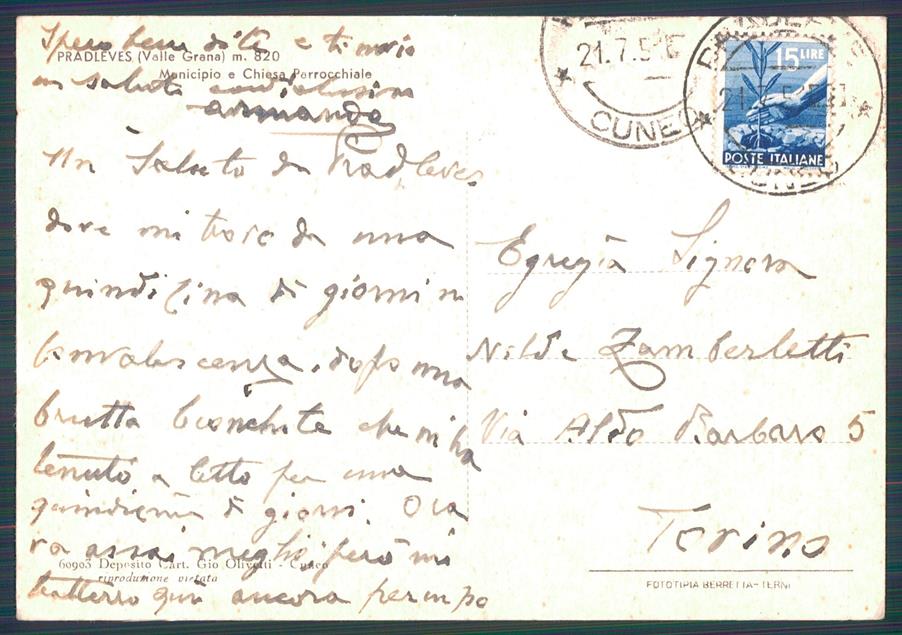 Spero bene di te e ti invio
PRADLEVES (Valle Grana) m. 820
un saluto cordialissimo
Municipio e Chiesa Parrocchiale
Armando
Un Saluto da Pradleves
dove mi trovo da una
quindicina di giorni in
convalescenza. dopo una
brutta bronchite che mi ha
tenuto a letto per una
quindicina di giorni. Ora
va assai meglio però mi
60903 Deposito Cart. Gio Olivetti - Cuneo
riproduzione vietata
tratterrò qui ancora per un po
21.7.5
CUNEO
15 LIRE
POSTE ITALIANE
CUNEO
Egregia Signora
Nilde Zamberletti
Via Aldo Barbaro 5
Torino
FOTOTIPIA BERRETTA - TERNI